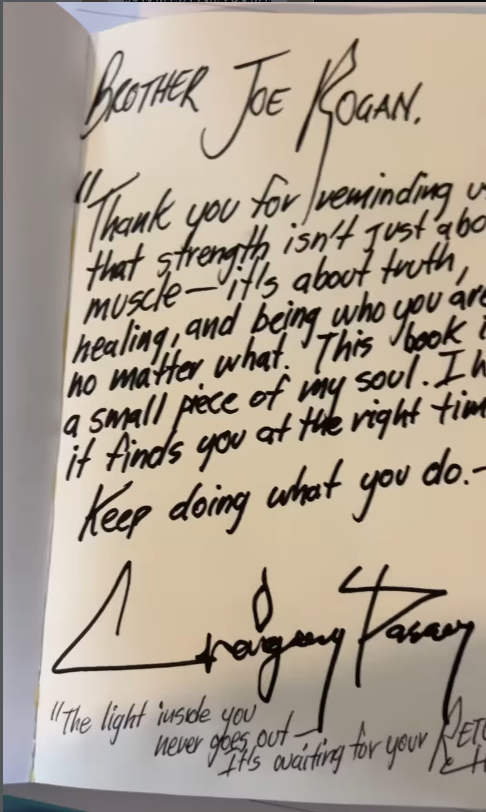 BROTHER JOE ROGAN.
"Thank you for reminding u
that strength isn't just abo
muscle—it's about truth,
healing, and being who you are
no matter what. This book i
a small piece of my soul. I h
it finds you at the right tim
Keep doing what you do.-
"The light inside you
never goes out—
It's waiting for your RETU